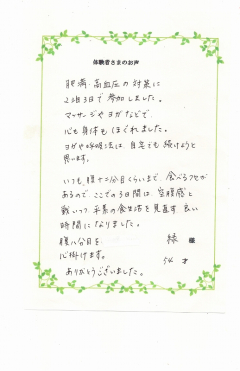 体験者さまのお声
肥満、高血圧の対策に
2泊3日で参加しました。
マッサージやヨガなどで、
心も身体もほぐれました。
ヨガや呼吸法は、自宅でも続けようと
思います。
いつも腹十二分目くらいまで、食べるクセが
あるので、ここでの3日間は、空腹感と
戦いつつ、平素の食生活を見直す良い
時間になりました。
腹八分目を
心掛けます。
ありがとうございました。
緑 様
54 才